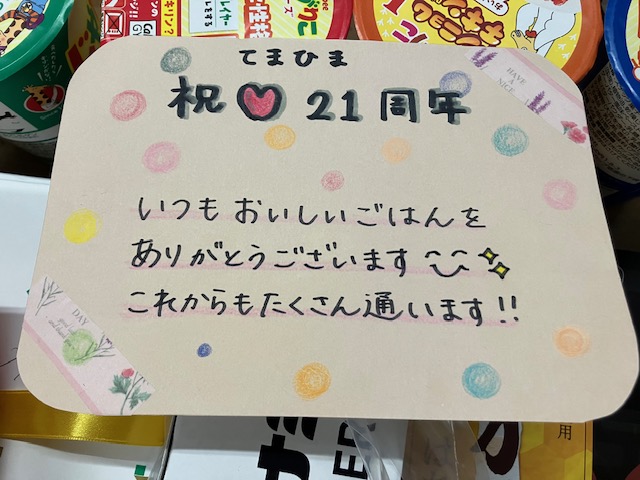 てまひま
祝♡21周年
いつもおいしいごはんを
ありがとうございます
これからもたくさん通います!!
HAVE
A
NICE
DAY
用